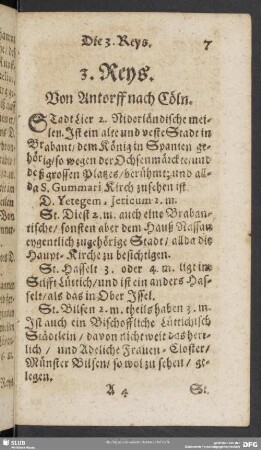 Die 3. Reys. 7
3. Reys.
Von Antorff nach Cöln.
Stadt Lier 2. Niderländische mei-
len. Ist ein alte und veste Stadt in
Brabant/ dem König in Spanien ge-
hörig/ so wegen der Ochsenmärckte/ und
deß grossen Platzes/ berühmt; und all-
da S. Gummari Kirch zusehen ist.
D. Yetegem, Jeticum 2. m.
St. Diest 2. m. auch eine Braban-
tische/ sonsten aber dem Hauß Nassau
eygentlich zugehörige Stadt/ allda die
Haupt-Kirche zu besichtigen.
St. Hasselt 3. oder 4. m. ligt im
Stifft Lüttich/ und ist ein anders Has-
selt/ als das in Ober Issel.
St. Bilsen 2. m. theils haben 3. m.
Ist auch ein Bischoffliche Lüttichisch
Städtlein/ davon nicht weit das herr-
lich/ und Adeliche Frauen-Closter/
Münster Bilsen/ so wol zu sehen/ ge-
legen.
A 4 St.
SLUB
DFG